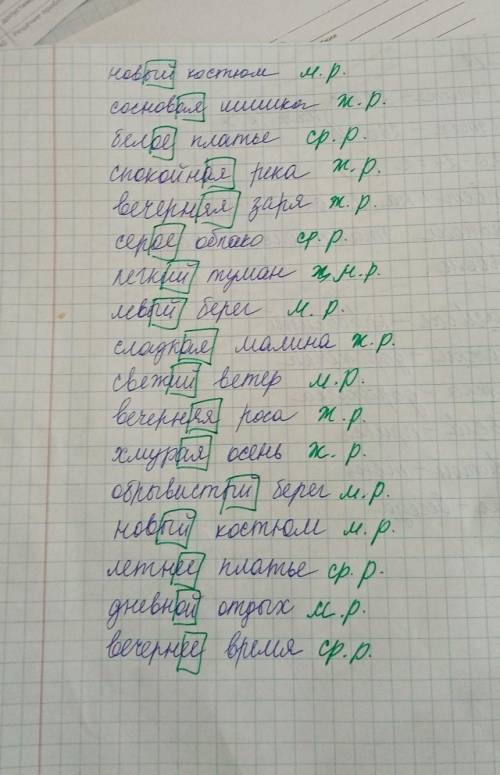 новый костюм м.р.
сосновая шишка ж.р.
белое платье ср.р.
спокойная река ж.р.
вечерняя заря ж.р.
серое облако ср.р.
легкий туман м.р.
левый берег м.р.
сладкая малина ж.р.
свежий ветер м.р.
вечерняя роса ж.р.
хмурая осень ж.р.
обрывистый берег м.р.
новый костюм м.р.
летнее платье ср.р.
дневной отдых м.р.
вечернее время ср.р.